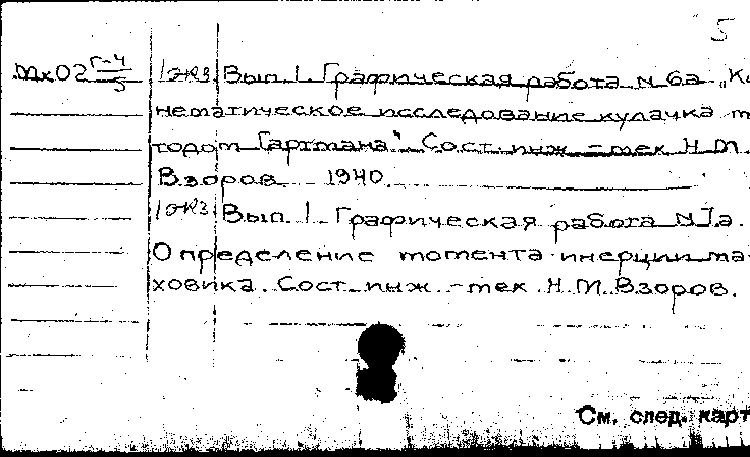 5
Мк02 Г-4/5 1 экз. Вып. I. Графическая работа № 6а „Ки
нематическое исследование кулачка м
тодом Гартмана". Сост. инж.-мех Н. М.
Взоров 1940.
1 экз. Вып. I. Графическая работа № Iа.
Определение момента инерции ма-
ховика. Сост. инж.-мех. Н. М. Взоров.
См. след. карт